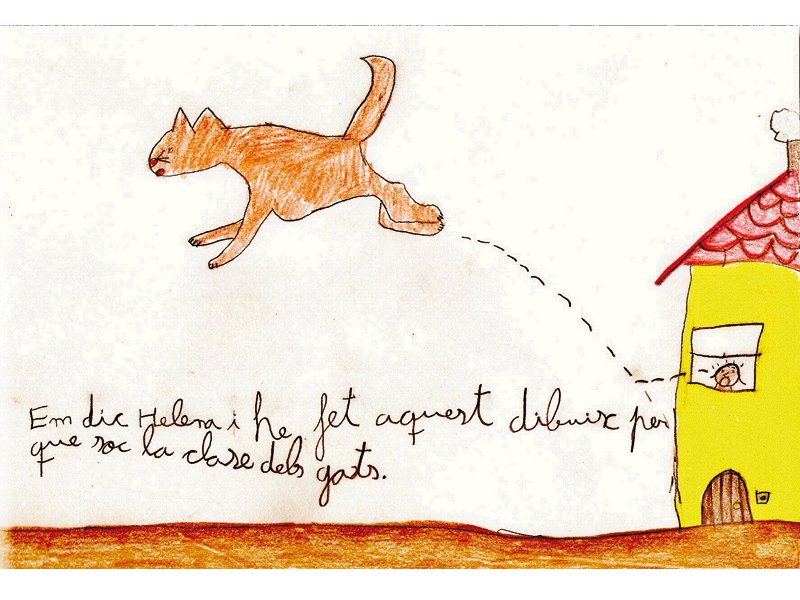 Em dic Helena i he fet aquest dibuix per
que soc la clase dels gats.